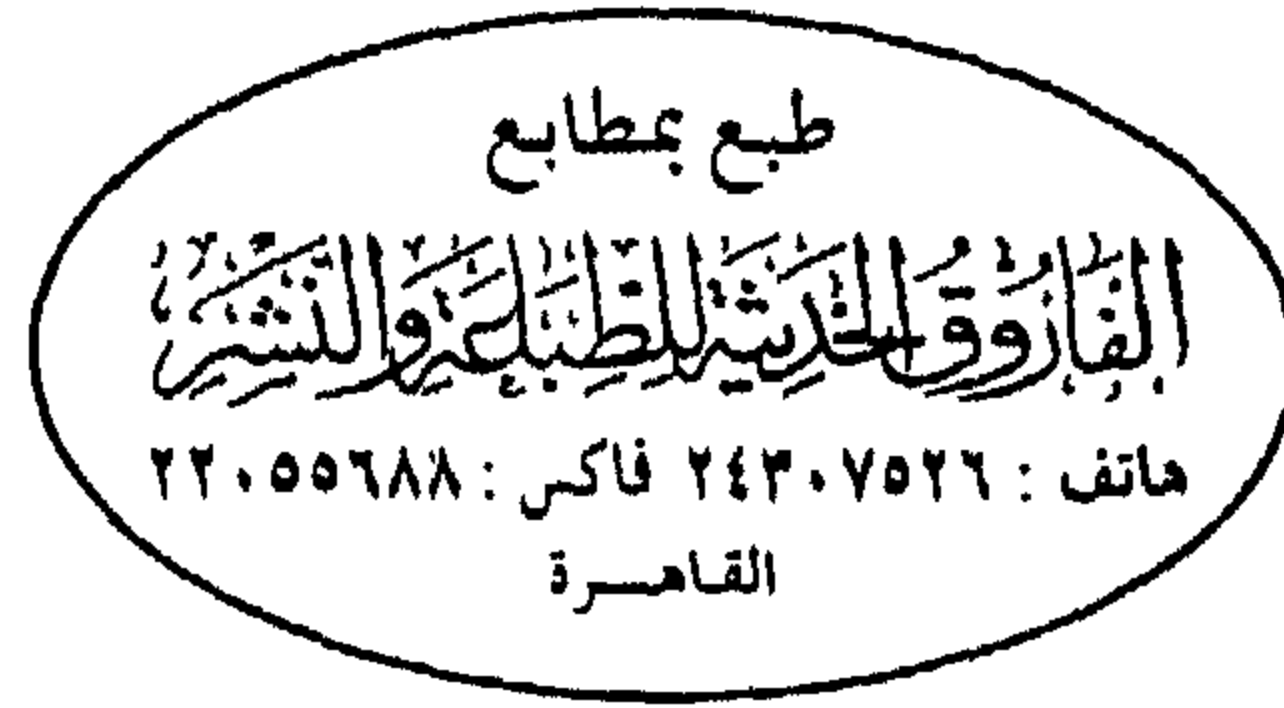 طبع بمطابع
الفَارُوقُ الحَدِيثَة لِلطِّبَاعَةِ وَالنَّشِرِ
هاتف : ٢٤٣٠٧٥٢٦ فاكس : ٢٢٠٥٥٦٨٨
القاهرة